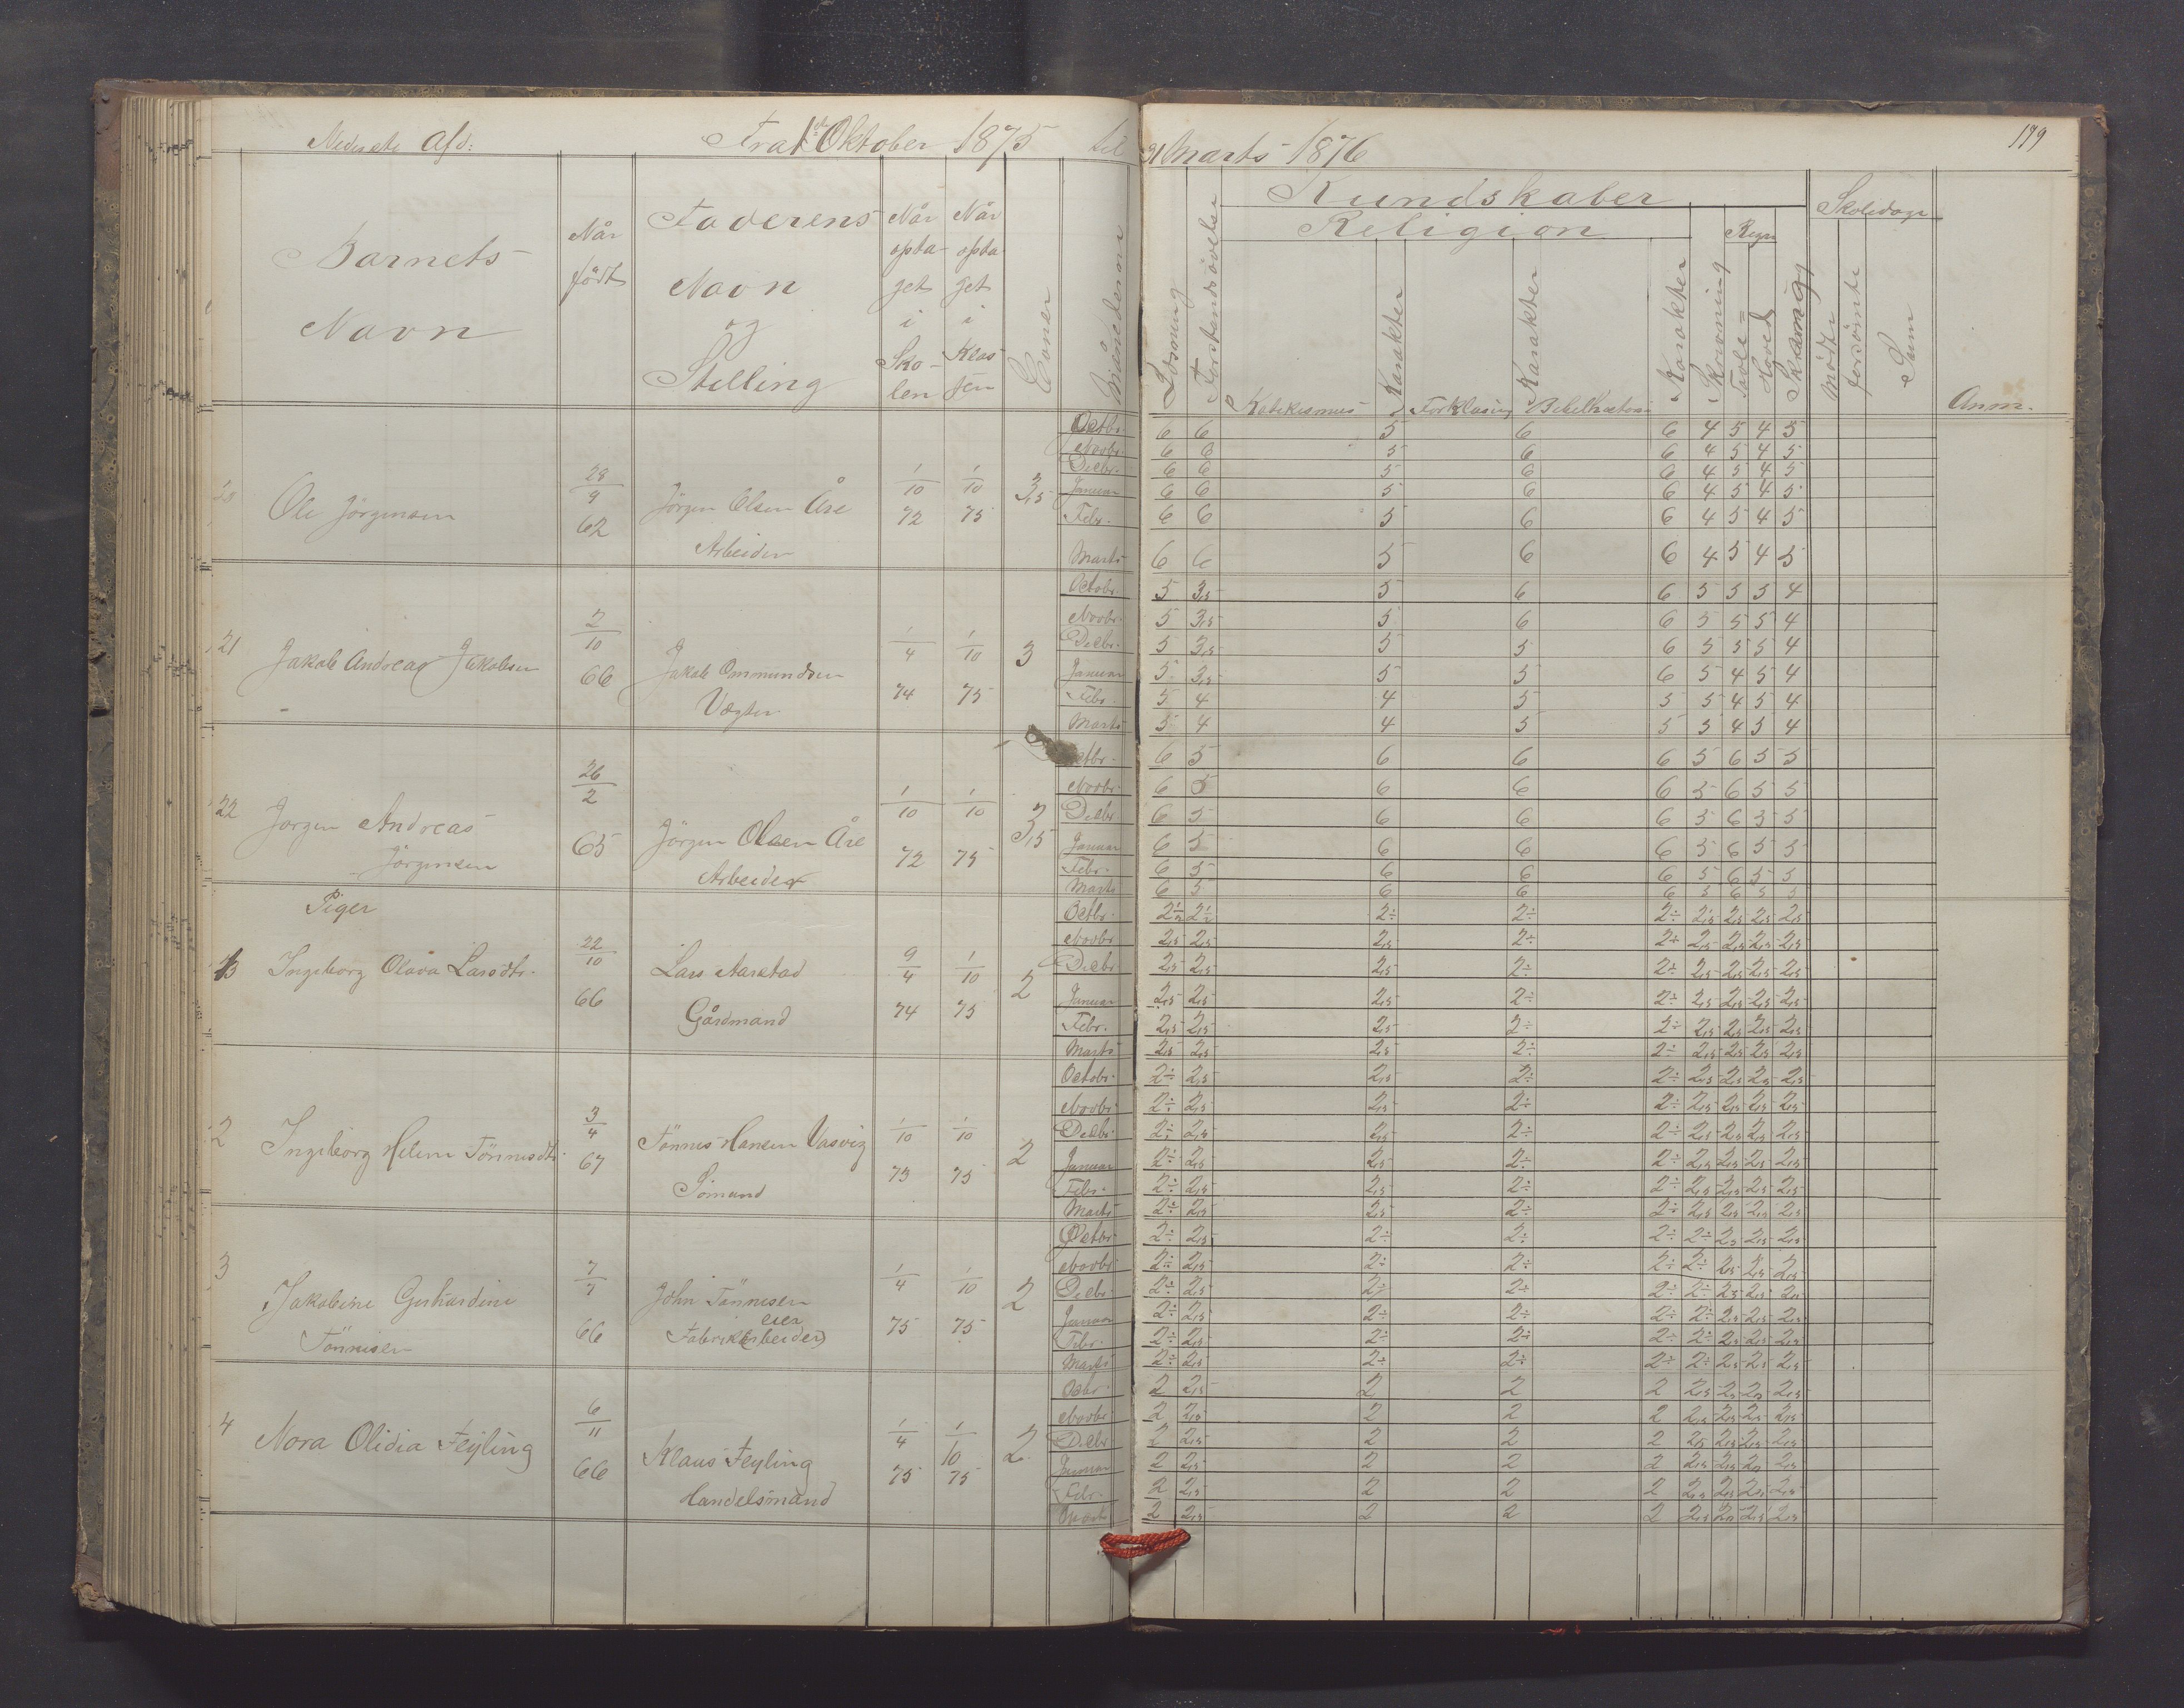 Nederste Afd: Fra 1ste Oktober 1875 til 31 Marts 1876 179
Barnets Navn
Når født
Faderens Navn og Stilling
Når optaget i Skolen
Når optaget i Klassen
Månederne
Kundskaber
Religion
Regn
Skoledage
Læsning
Forstandsøvelse
Katekismus
Karakter
Forklaring
Karakter
Bibelhistorie
Karakter
Skrivning
Tavle=
Hoved
mødte
forsømte
Sum
Anm.
Ole Jörgensen 28/9 62 Jörgen Olsen Åse 1/10 72 1/10 75 3,5
Arbeider
Octbr. 6 6 5 6 6 4 5 4 5
Novbr. 6 6 5 6 6 4 5 4 5
Decbr. 6 6 5 6 6 4 5 4 5
Januar 6 6 5 6 6 4 5 4 5
Febr. 6 6 5 6 6 4 5 4 5
Marts 6 6 5 6 6 4 5 4 5
21 Jakob Andreas Jakobsen 2/10 66 Jakob Ommundsen 1/4 74 1/10 75 3
Vægter
Octobr. 5 3,5 5 6 6 5 5 5 4
Novbr. 5 3,5 5 6 6 5 5 5 4
Decbr. 5 3,5 5 5 6 5 5 5 4
Januar 5 3,5 5 5 6 5 4 5 4
Febr. 5 4 4 5 5 5 4 5 4
Marts 5 4 4 5 5 5 4 5 4
22 Jörgen Andreas 26/2 65 Jörgen Olsen Åse 1/10 72 1/10 75 3,5
Jörgensen Arbeider
Octbr. 6 5 6 6 6 5 6 5 5
Novbr. 6 5 6 6 6 5 6 5 5
Decbr 6 5 6 6 6 5 6 5 5
Januar 6 5 6 6 6 5 6 5 5
Febr. 6 5 6 6 6 5 6 5 5
Marts 6 5 6 6 6 5 6 5 5
Piger
Ingeborg Olava Larsdtr. 22/10 66 Lars Aarstad 9/4 74 1/10 75 2
Gårdmand
Octbr. 2÷ 2÷ 2÷ 2,5 2,5 2,5 2,5
Novbr 2,5 2,5 2,5 2÷ 2÷ 2,5 2,5 2,5 2,5
Decbr. 2,5 2,5 2,5 2÷ 2÷ 2,5 2,5 2,5 2,5
Januar 2,5 2,5 2,5 2÷ 2÷ 2,5 2,5 2,5 2,5
Febr. 2,5 2,5 2,5 2÷ 2÷ 2,5 2,5 2,5 2,5
Marts 2,5 2,5 2,5 2÷ 2÷ 2,5 2,5 2,5 2,5
2 Ingeborg Helene Tönnesdtr. 3/4 67 Tönnes Hansen Vasvig 1/10 73 1/10 75 2
Sömand
Octobr. 2÷ 2,5 2,5 2÷ 2÷ 2,5 2,5 2,5 2,5
Novbr. 2÷ 2,5 2,5 2÷ 2÷ 2,5 2,5 2,5 2,5
Decbr. 2÷ 2,5 2,5 2÷ 2÷ 2,5 2,5 2,5 2,5
Januar 2÷ 2,5 2,5 2÷ 2÷ 2,5 2,5 2,5 2,5
Febr. 2÷ 2,5 2,5 2÷ 2÷ 2,5 2,5 2,5 2,5
Marts 2÷ 2,5 2,5 2÷ 2÷ 2,5 2,5 2,5 2,5
3 Jakobine Gerhardine 7/7 66 John Tönnesen 1/4 75 1/10 75 2
Tönnesen Fabrikarbeider
eier
Octbr. 2÷ 2,5 2÷ 2÷ 2÷ 2÷ 2,5 2,5 2,5
Novbr. 2÷ 2,5 2÷ 2÷ 2÷ 2÷ 2,5 2,5 2,5
Decbr. 2÷ 2,5 2÷ 2÷ 2÷ 2÷ 2,5 2,5 2,5
Januar 2÷ 2,5 2÷ 2÷ 2÷ 2÷ 2,5 2,5 2,5
Febr. 2÷ 2,5 2÷ 2÷ 2÷ 2÷ 2,5 2,5 2,5
Marts 2÷ 2,5 2÷ 2÷ 2÷ 2÷ 2,5 2,5 2,5
4 Nora Olidia Feyling 6/11 66 Klaus Feyling 1/4 75 1/10 75 2
Handelsmand
Octbr 2 2,5 2 2 2 2,5 2,5 2,5 2,5
Novbr. 2 2,5 2 2 2 2,5 2,5 2,5 2,5
Decbr. 2 2,5 2 2 2 2,5 2,5 2,5 2,5
Januar 2 2,5 2 2 2 2,5 2,5 2,5 2,5
Febr. 2 2,5 2 2 2 2,5 2,5 2,5 2,5
Marts 2 2,5 2 2 2 2,5 2,5 2,5 2,5